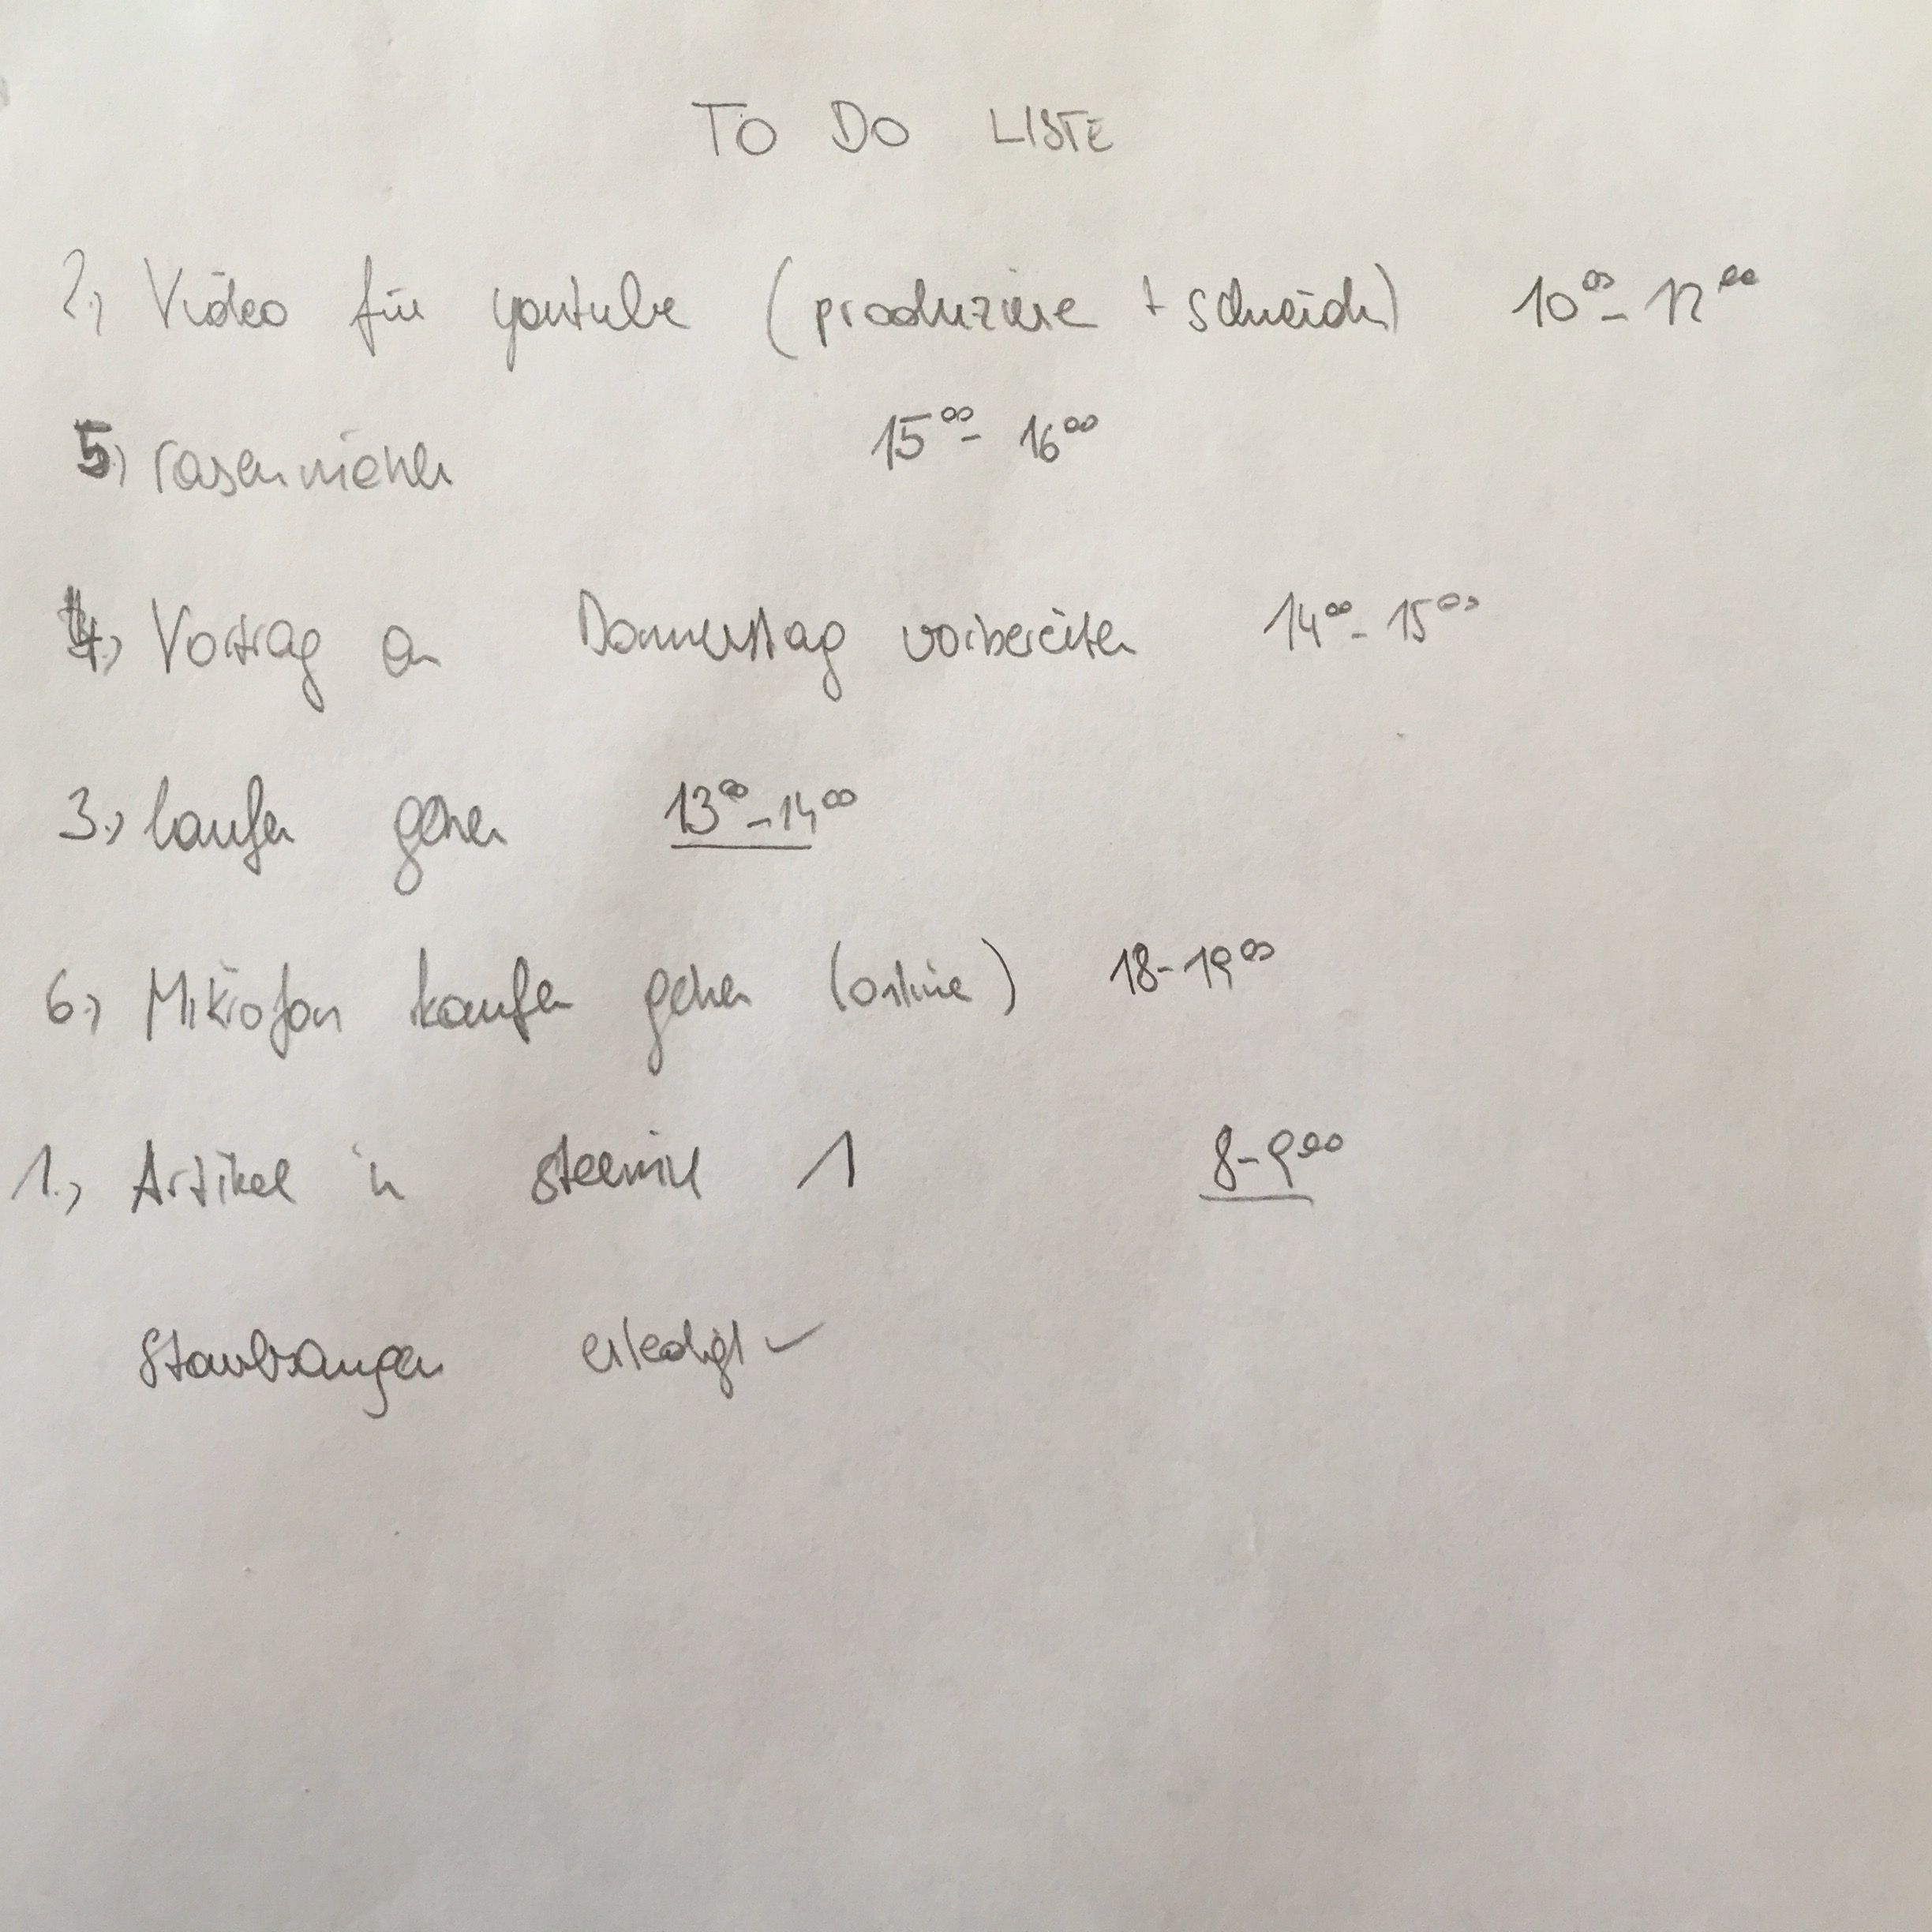 TO DO LISTE
2.) Video für youtube (produziere + schneiden) 10⁰⁰ - 12⁰⁰
5.) rasenmähen 15⁰⁰ - 16⁰⁰
4.) Vortrag an Donnerstag vorbereiten 14⁰⁰ - 15⁰⁰
3.) laufen gehen 13⁰⁰ - 14⁰⁰
6.) Mikrofon kaufen gehen (online) 18 - 19⁰⁰
1.) Artikel in steemit 1 8 - 9⁰⁰
Staubsaugen erledigt ✓